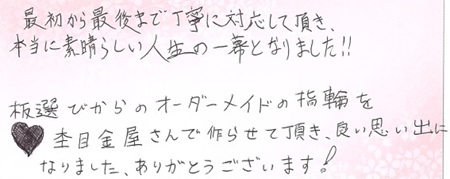 最初から最後まで丁寧に対応して頂き、
本当に素晴らしい人生の一幕となりました!!
板選びからのオーダーメイドの指輪を
♥杢目金屋さんで作らせて頂き、良い思い出に
なりました、ありがとうございます!